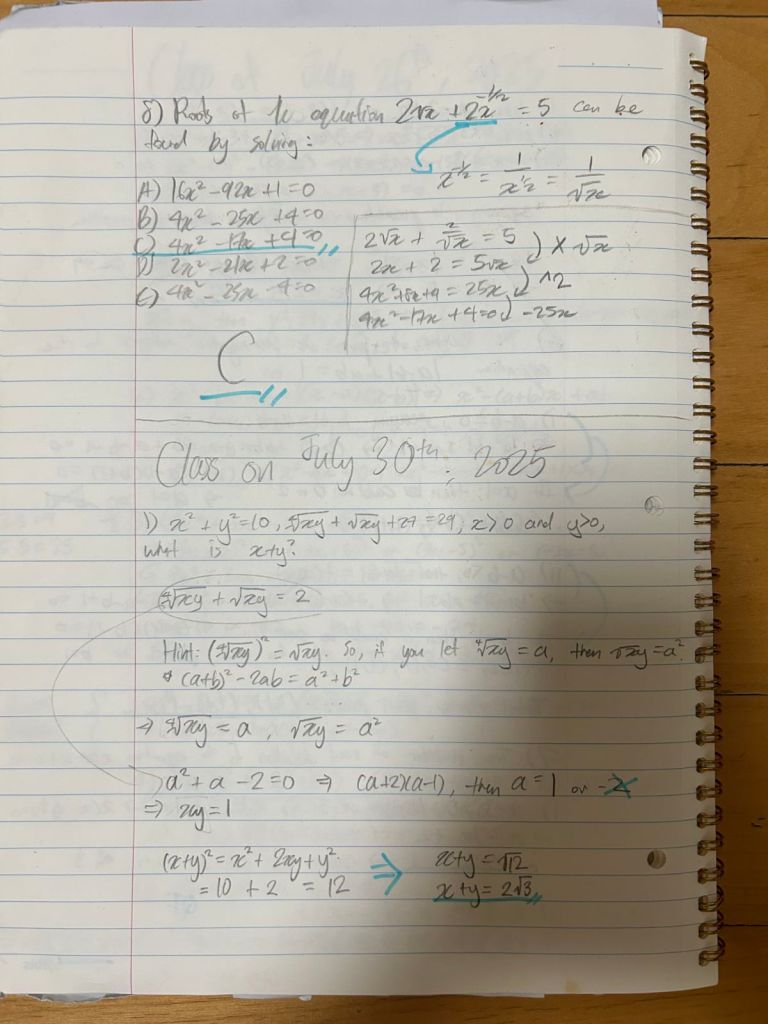 8) Roots of the equation 2√x + 2x^-1/2 = 5 can be
found by solving:
x^-1/2 = 1/x^1/2 = 1/√x
A) 16x² - 92x + 1 = 0
B) 4x² - 25x + 4 = 0
C) 4x² - 17x + 4 = 0
D) 2x² - 21x + 2 = 0
E) 4x² - 25x - 4 = 0
2√x + 2/√x = 5
2x + 2 = 5√x
× √x
4x² + 8x + 4 = 25x
^2
4x² - 17x + 4 = 0
-25x
C
Class on July 30th, 2025
1) x² + y² = 10, ⁴√xy + √xy + 27 = 29, x > 0 and y > 0,
what is x+y?
⁴√xy + √xy = 2
Hint: (⁴√xy)² = √xy. So, if you let ⁴√xy = a, then √xy = a².
(a+b)² - 2ab = a² + b²
⇒ ⁴√xy = a, √xy = a²
a² + a - 2 = 0 ⇒ (a+2)(a-1), then a = 1 or -2
⇒ xy = 1
(x+y)² = x² + 2xy + y²
= 10 + 2 = 12
⇒ x+y = √12
x+y = 2√3